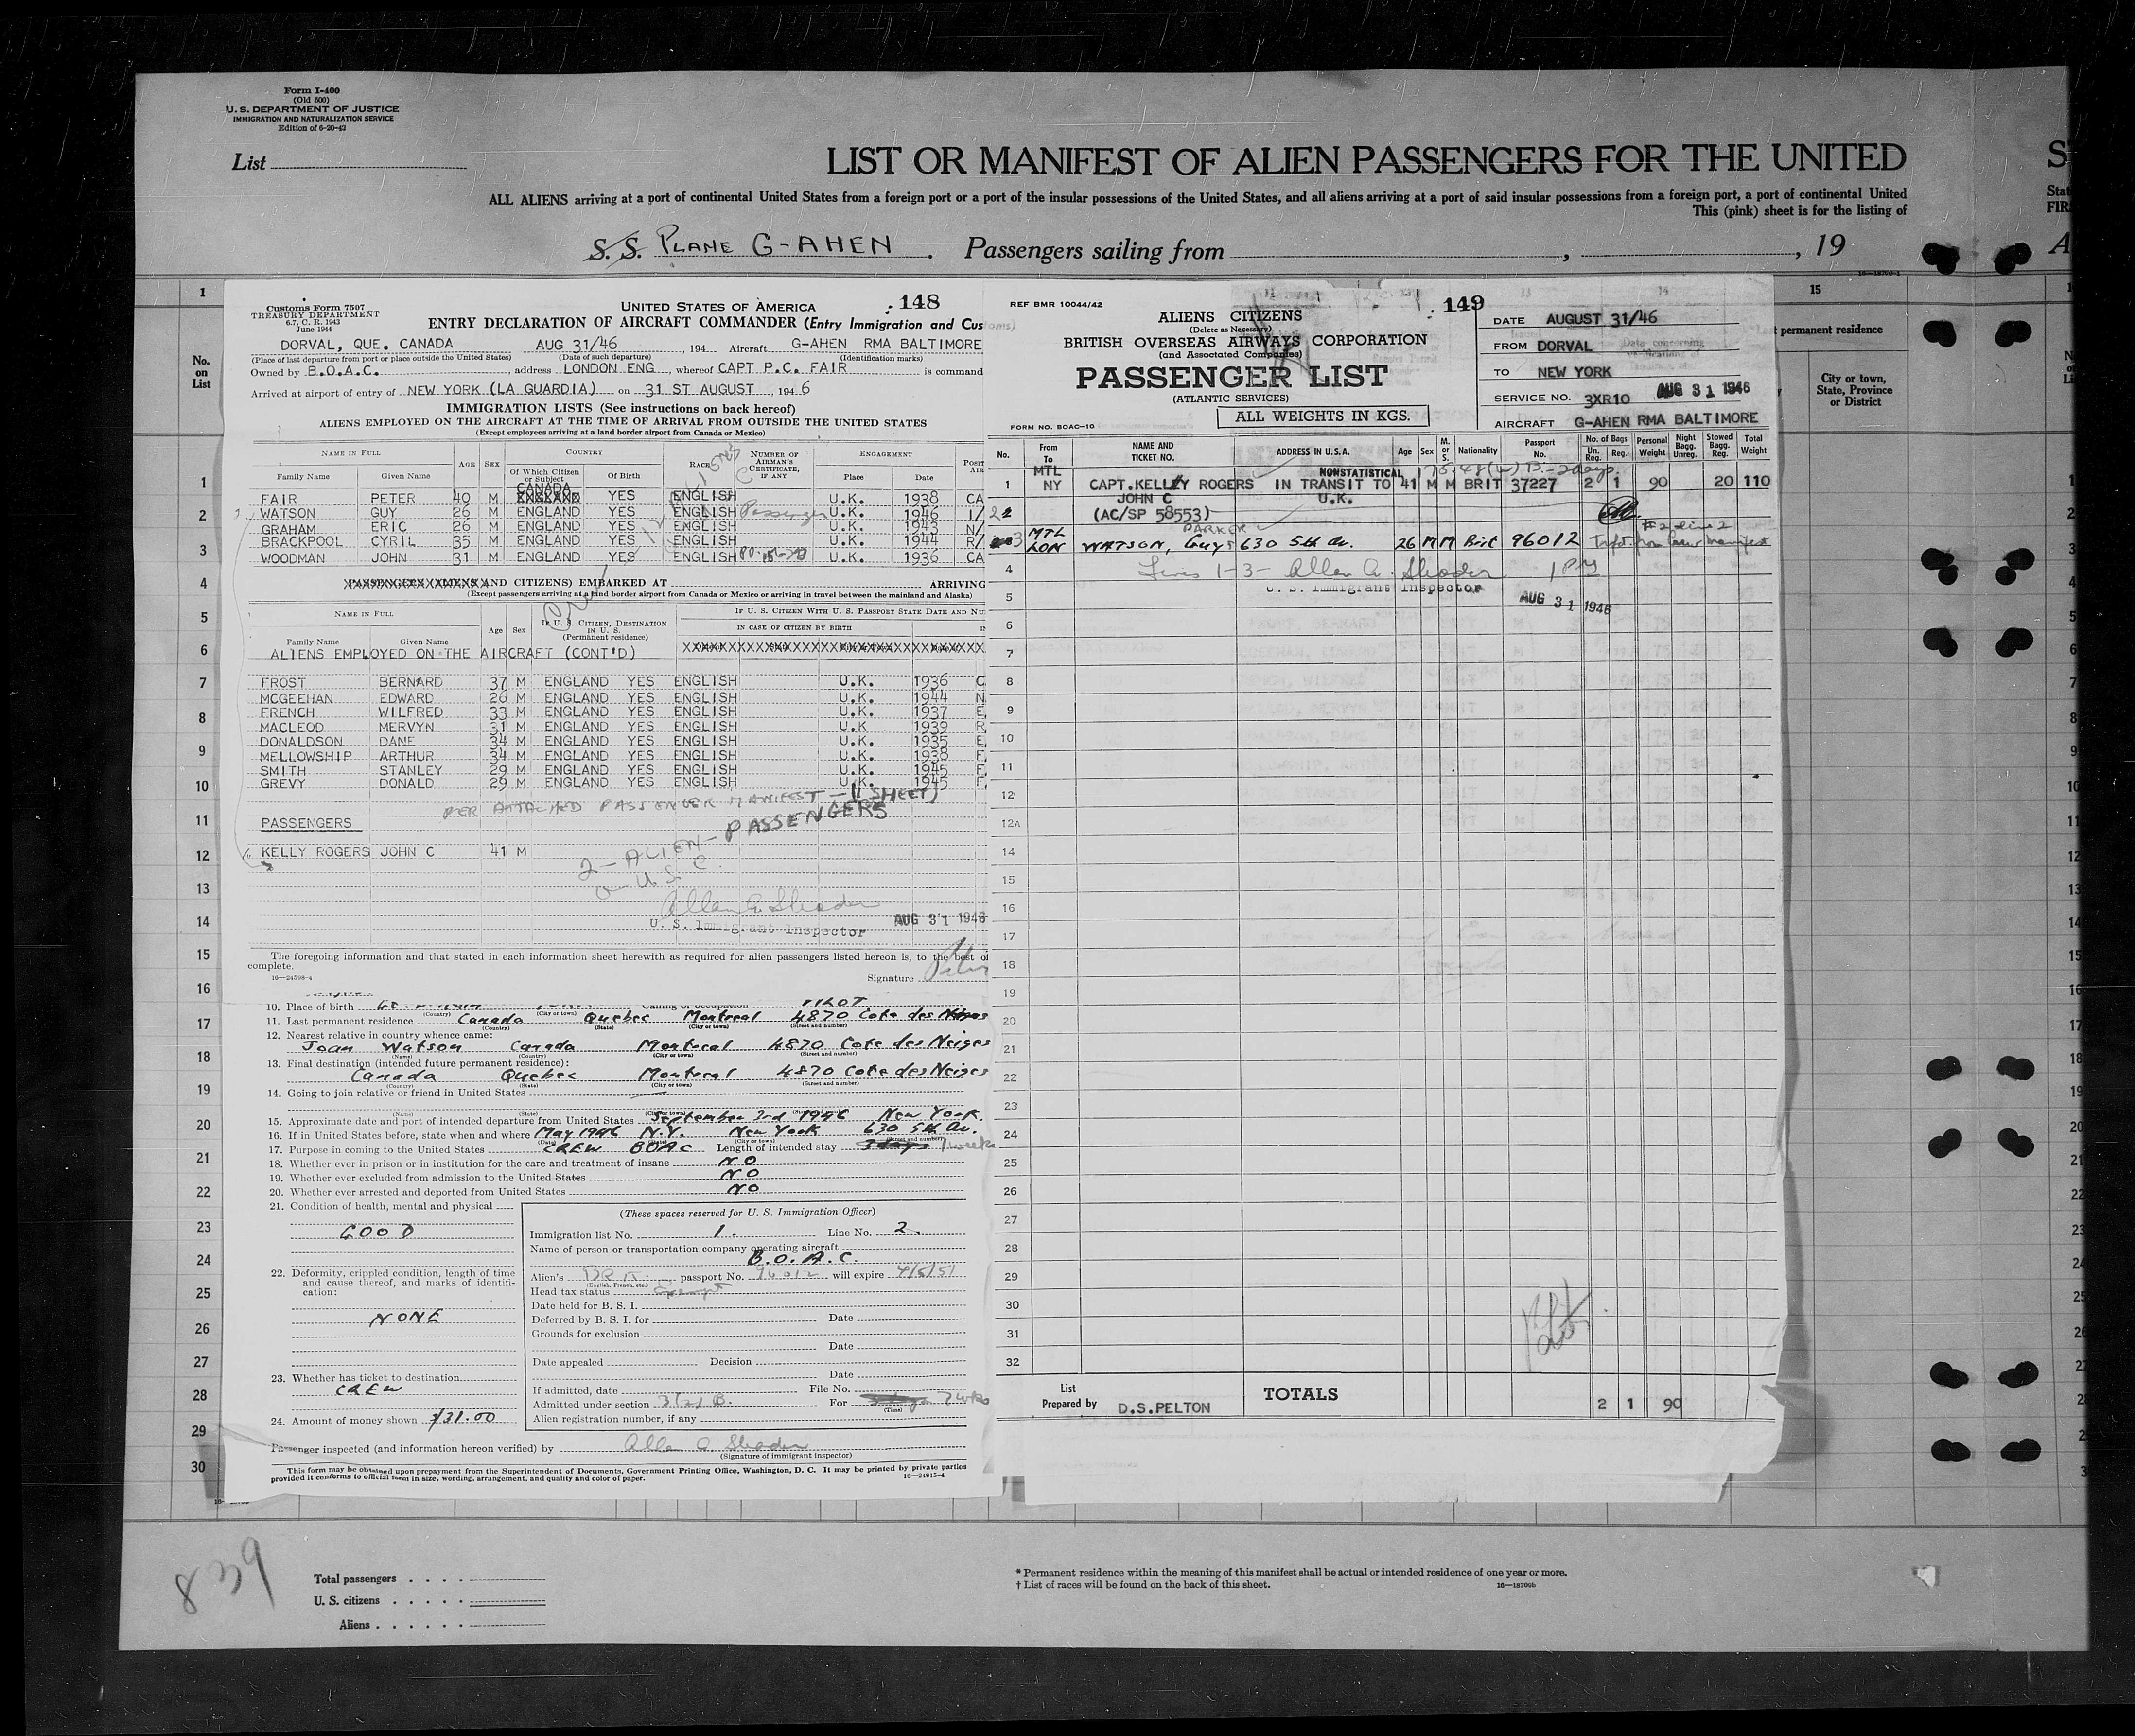 Form I-400
(Old 500)
U. S. DEPARTMENT OF JUSTICE
IMMIGRATION AND NATURALIZATION SERVICE
Edition of 6-20-42
List
LIST OR MANIFEST OF ALIEN PASSENGERS FOR THE UNITED
ALL ALIENS arriving at a port of continental United States from a foreign port or a port of the insular possessions of the United States, and all aliens arriving at a port of said insular possessions from a foreign port, a port of continental United
This (pink) sheet is for the listing of
S. S. PLANE G-AHEN . Passengers sailing from , , 19
Customs Form 7507
TREASURY DEPARTMENT
6.7, C. R. 1943
June 1944
UNITED STATES OF AMERICA 148
ENTRY DECLARATION OF AIRCRAFT COMMANDER (Entry Immigration and Customs)
DORVAL, QUE. CANADA AUG 31/46 , 194 Aircraft G-AHEN RMA BALTIMORE
(Place of last departure from port or place outside the United States) (Date of such departure) (Identification marks)
Owned by B.O.A.C. , address LONDON ENG , whereof CAPT P.C. FAIR is command
Arrived at airport of entry of NEW YORK (LA GUARDIA) on 31 ST AUGUST , 194 6
IMMIGRATION LISTS (See instructions on back hereof)
ALIENS EMPLOYED ON THE AIRCRAFT AT THE TIME OF ARRIVAL FROM OUTSIDE THE UNITED STATES
(Except employees arriving at a land border airport from Canada or Mexico)
NAME IN FULL AGE SEX COUNTRY RACE NUMBER OF AIRMAN'S CERTIFICATE, IF ANY ENGAGEMENT
Family Name Given Name Of Which Citizen or Subject Of Birth Place Date
CANADA
FAIR PETER 40 M ENGLAND YES ENGLISH U.K. 1938 CA
WATSON GUY 26 M ENGLAND YES ENGLISH Passenger U.K. 1946 1/
GRAHAM ERIC 26 M ENGLAND YES ENGLISH U.K. 1943 N/
BRACKPOOL CYRIL 35 M ENGLAND YES ENGLISH U.K. 1944 R/
WOODMAN JOHN 31 M ENGLAND YES ENGLISH U.K. 1936 CA
PASSENGERS (ALIENS AND CITIZENS) EMBARKED AT ARRIVING
(Except passengers arriving at a land border airport from Canada or Mexico or arriving in travel between the mainland and Alaska)
NAME IN FULL Age Sex IF U. S. CITIZEN, DESTINATION IN U. S. (Permanent residence) IF U. S. CITIZEN WITH U. S. PASSPORT STATE DATE AND NU
IN CASE OF CITIZEN BY BIRTH
Family Name Given Name
ALIENS EMPLOYED ON THE AIRCRAFT (CONT'D)
FROST BERNARD 37 M ENGLAND YES ENGLISH U.K. 1936 C
MCGEEHAN EDWARD 26 M ENGLAND YES ENGLISH U.K. 1944 N
FRENCH WILFRED 33 M ENGLAND YES ENGLISH U.K. 1937 E
MACLEOD MERVYN 31 M ENGLAND YES ENGLISH U.K 1939 R
DONALDSON DANE 34 M ENGLAND YES ENGLISH U.K. 1935 E
MELLOWSHIP ARTHUR 34 M ENGLAND YES ENGLISH U.K. 1938 F
SMITH STANLEY 29 M ENGLAND YES ENGLISH U.K. 1945 F
GREVY DONALD 29 M ENGLAND YES ENGLISH U.K. 1945 F
PER ATTACHED PASSENGER MANIFEST - (1 SHEET)
PASSENGERS
2 - ALIEN - PASSENGERS
0 - U.S.C.
KELLY ROGERS JOHN C 41 M
Allen A. Shader
U. S. Immigrant Inspector AUG 31 1946
The foregoing information and that stated in each information sheet herewith as required for alien passengers listed hereon is, to the best of
complete.
16—24598-4 Signature
10. Place of birth PILOT
11. Last permanent residence Canada Quebec Montreal 4870 Cote des Neiges
(Country) (State) (City or town) (Street and number)
12. Nearest relative in country whence came:
Joan Watson Canada Montreal 4870 Cote des Neiges
(Name) (Country) (City or town) (Street and number)
13. Final destination (intended future permanent residence):
Canada Quebec Montreal 4870 Cote des Neiges
(Country) (State) (City or town) (Street and number)
14. Going to join relative or friend in United States
15. Approximate date and port of intended departure from United States September 3rd 1946 New York.
16. If in United States before, state when and where May 1946 N.Y. New York 630 5th Av.
17. Purpose in coming to the United States CREW BOAC Length of intended stay 3 days 7 weeks
18. Whether ever in prison or in institution for the care and treatment of insane NO
19. Whether ever excluded from admission to the United States NO
20. Whether ever arrested and deported from United States NO
21. Condition of health, mental and physical
GOOD
22. Deformity, crippled condition, length of time and cause thereof, and marks of identification:
NONE
23. Whether has ticket to destination
CREW
24. Amount of money shown $31.00
(These spaces reserved for U. S. Immigration Officer)
Immigration list No. 1. Line No. 2.
Name of person or transportation company operating aircraft
B.O.A.C.
Alien's BRIT. passport No. 96012 will expire 4/5/51
(English, French, etc.)
Head tax status Exempt
Date held for B. S. I.
Deferred by B. S. I. for Date
Grounds for exclusion
Date
Date appealed Decision
Date
If admitted, date File No.
Admitted under section 3(2) B. For 7 wks
(Time)
Alien registration number, if any
Passenger inspected (and information hereon verified) by Allen A. Shader
(Signature of immigrant inspector)
This form may be obtained upon prepayment from the Superintendent of Documents, Government Printing Office, Washington, D. C. It may be printed by private parties
provided it conforms to official form in size, wording, arrangement, and quality and color of paper. 16—24915-4
REF BMR 10044/42 149
ALIENS CITIZENS
(Delete as Necessary)
BRITISH OVERSEAS AIRWAYS CORPORATION
(and Associated Companies)
PASSENGER LIST
(ATLANTIC SERVICES)
ALL WEIGHTS IN KGS.
FORM NO. BOAC-10
DATE AUGUST 31/46
FROM DORVAL
TO NEW YORK
SERVICE NO. 3XR10 AUG 31 1946
AIRCRAFT G-AHEN RMA BALTIMORE
No. From To NAME AND TICKET NO. ADDRESS IN U.S.A. Age Sex M. or S. Nationality Passport No. No. of Bags Un. Reg. Reg. Personal Weight Night Bagg. Unreg. Stowed Bagg. Reg. Total Weight
MTL NONSTATISTICAL
1 NY CAPT. KELLY ROGERS IN TRANSIT TO 41 M M BRIT 37227 2 1 90 20 110
JOHN C U.K.
2 (AC/SP 58553)
PARKER
3 MTL LON WATSON, Guy 630 5th Av. 26 M M Brit 96012
4 Lines 1-3- Allen A. Shader 1 PM
5 U. S. Immigrant Inspector AUG 31 1946
6
7
8
9
10
11
12
12A
14
15
16
17
18
19
20
21
22
23
24
25
26
27
28
29
30
31
32
List Prepared by D.S.PELTON TOTALS 2 1 90
15
permanent residence
City or town, State, Province or District
No. on List
1
2
3
4
5
6
7
8
9
10
11
12
13
14
15
16
17
18
19
20
21
22
23
24
25
26
27
28
29
30
Total passengers
U. S. citizens
Aliens
* Permanent residence within the meaning of this manifest shall be actual or intended residence of one year or more.
† List of races will be found on the back of this sheet. 16—18700b